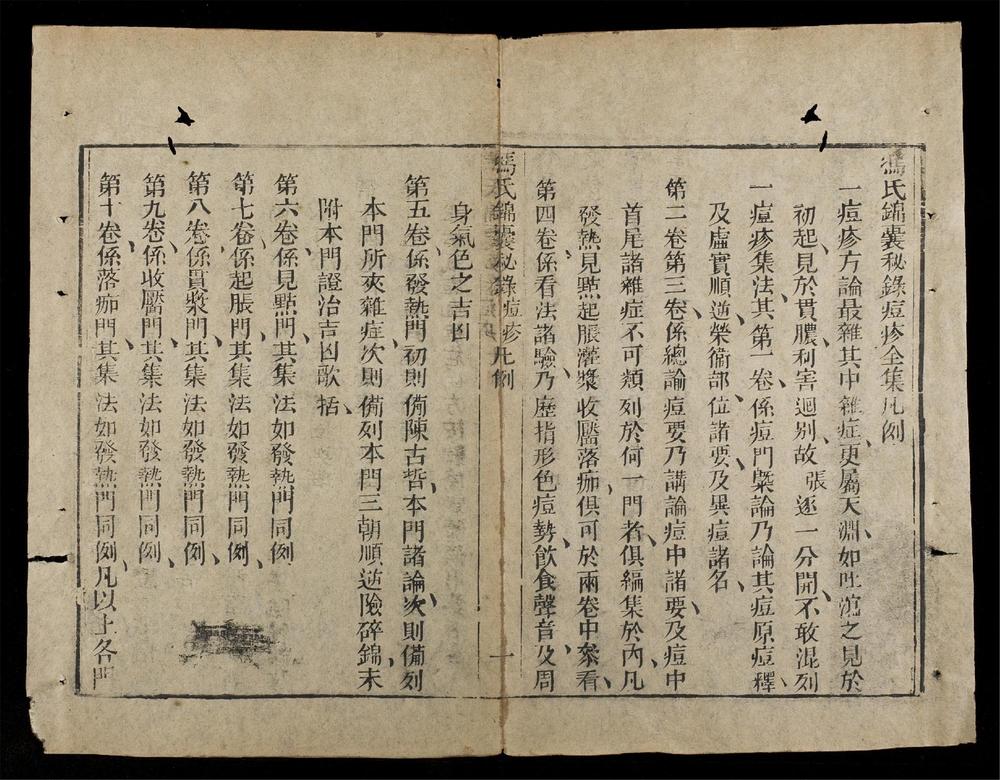 馮氏錦囊秘錄痘疹全集凡例
一痘疹方論最雜其中雜症更屬天淵如吐瀉之見於
初起見於貫膿利害迴別故張逐一分開不敢混列
一痘疹集法其第一卷係痘門槩論乃論其痘原痘釋
及虛實順逆榮衞部位諸要及異痘諸名
第二卷第三卷係總論痘要乃講論痘中諸要及痘中
首尾諸雜症不可類列於何一門者俱編集於內凡
發熱見點起脹灌漿收靨落痂俱可於兩卷中叅看
第四卷係看法諸驗乃歷指形色痘勢飲食聲音及周
馮氏錦囊秘錄 痘疹凡例 一
身氣色之吉凶
第五卷係發熱門初則備陳古哲本門諸論次則備列
本門所夾雜症次則備列本門三朝順逆險碎錦末
附本門證治吉凶歌括
第六卷係見點門其集法如發熱門同例
第七卷係起脹門其集法如發熱門同例
第八卷係貫漿門其集法如發熱門同例
第九卷係收靨門其集法如發熱門同例
第十卷係落痂門其集法如發熱門同例凡以上各門